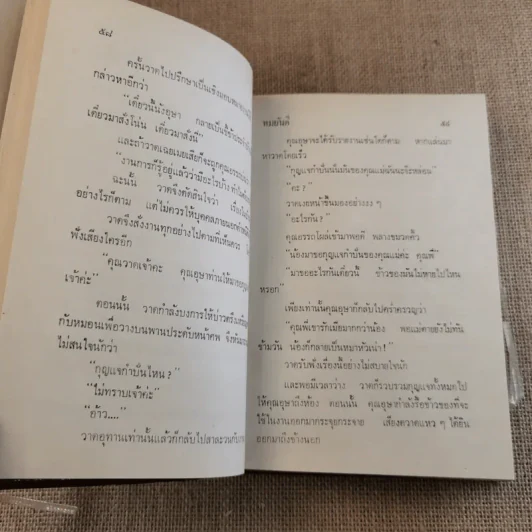 ๕๘
ครั้นวาดไปปรึกษาเป็นเชิง
กล่าวหาอีกว่า
“เดี๋ยวนี้นังอุษา กลายเป็นขี้ข้า
เดี๋ยวมาสั่งโน่น เดี๋ยวมาสั่งนี่”
และถ้าวาดเฉยเมยเสียก็จะถูกคุณ
งานการก็รู้อยู่แล้วว่ามีอะไรบ้าง ทำไม
ฉะนั้น วาดจึงตัดสินใจว่า เรื่อง
อย่างไรก็ตาม แต่ไม่ควรให้บุคคลภายนอก
วาดจึงสั่งงานทุกอย่างไปตามที่เห็นควร
ฟังเสียงใครอีก
“คุณวาดเจ้าคะ คุณอุษาท่านให้มา
เจ้าค่ะ”
ตอนนั้น วาดกำลังบงการให้บ่าว
กับหมอนเพื่อวางบนพานประดับหน้าศพ จึง
ไม่สนใจนักว่า
“กุญแจกำปั่นไหน ?
“ไม่ทราบเจ้าค่ะ”
“อ้าว....”
วาดอุทานเท่านั้นแล้วก็กลับไปสาละวนกับ
๕๙
คุณอุษาจะได้รับรายงานเช่นไรก็ตาม หากแล่นมา
หาวาดโดยเร็ว
“กุญแจกำปั่นนั่นมันของคุณแม่ฉันนะจ๊ะหล่อน”
“คะ ?
วาดเงยหน้าขึ้นมองอย่างงง ๆ
“อะไรกัน ?
คุณอรรถโผล่เข้ามาพอดี พลางขมวดคิ้ว
“น้องมาขอกุญแจกำปั่นของคุณแม่ค่ะ คุณพี่”
“มาขออะไรกันเดี๋ยวนี้ ข้าวของมันไม่หายไปไหน
หรอก”
เพียงเท่านั้นคุณอุษาก็กลับไปคร่ำครวญว่า
“คุณพี่เขารักเมียมากกว่าน้อง พอแม่ตายยังไม่ทัน
ข้ามวัน น้องก็กลายเป็นหมาหัวเน่า !
วาดรับฟังเรื่องนี้อย่างไม่สบายใจนัก
และพอมีเวลาว่าง วาดก็รวบรวมกุญแจทั้งหมดไป
ให้คุณอุษาถึงห้อง ตอนนั้น คุณอุษากำลังรื้อข้าวของที่จะ
ใช้ในงานออกมากระจุยกระจาย เสียงตวาดแหว ๆ ได้ยิน
ออกมาถึงข้างนอก